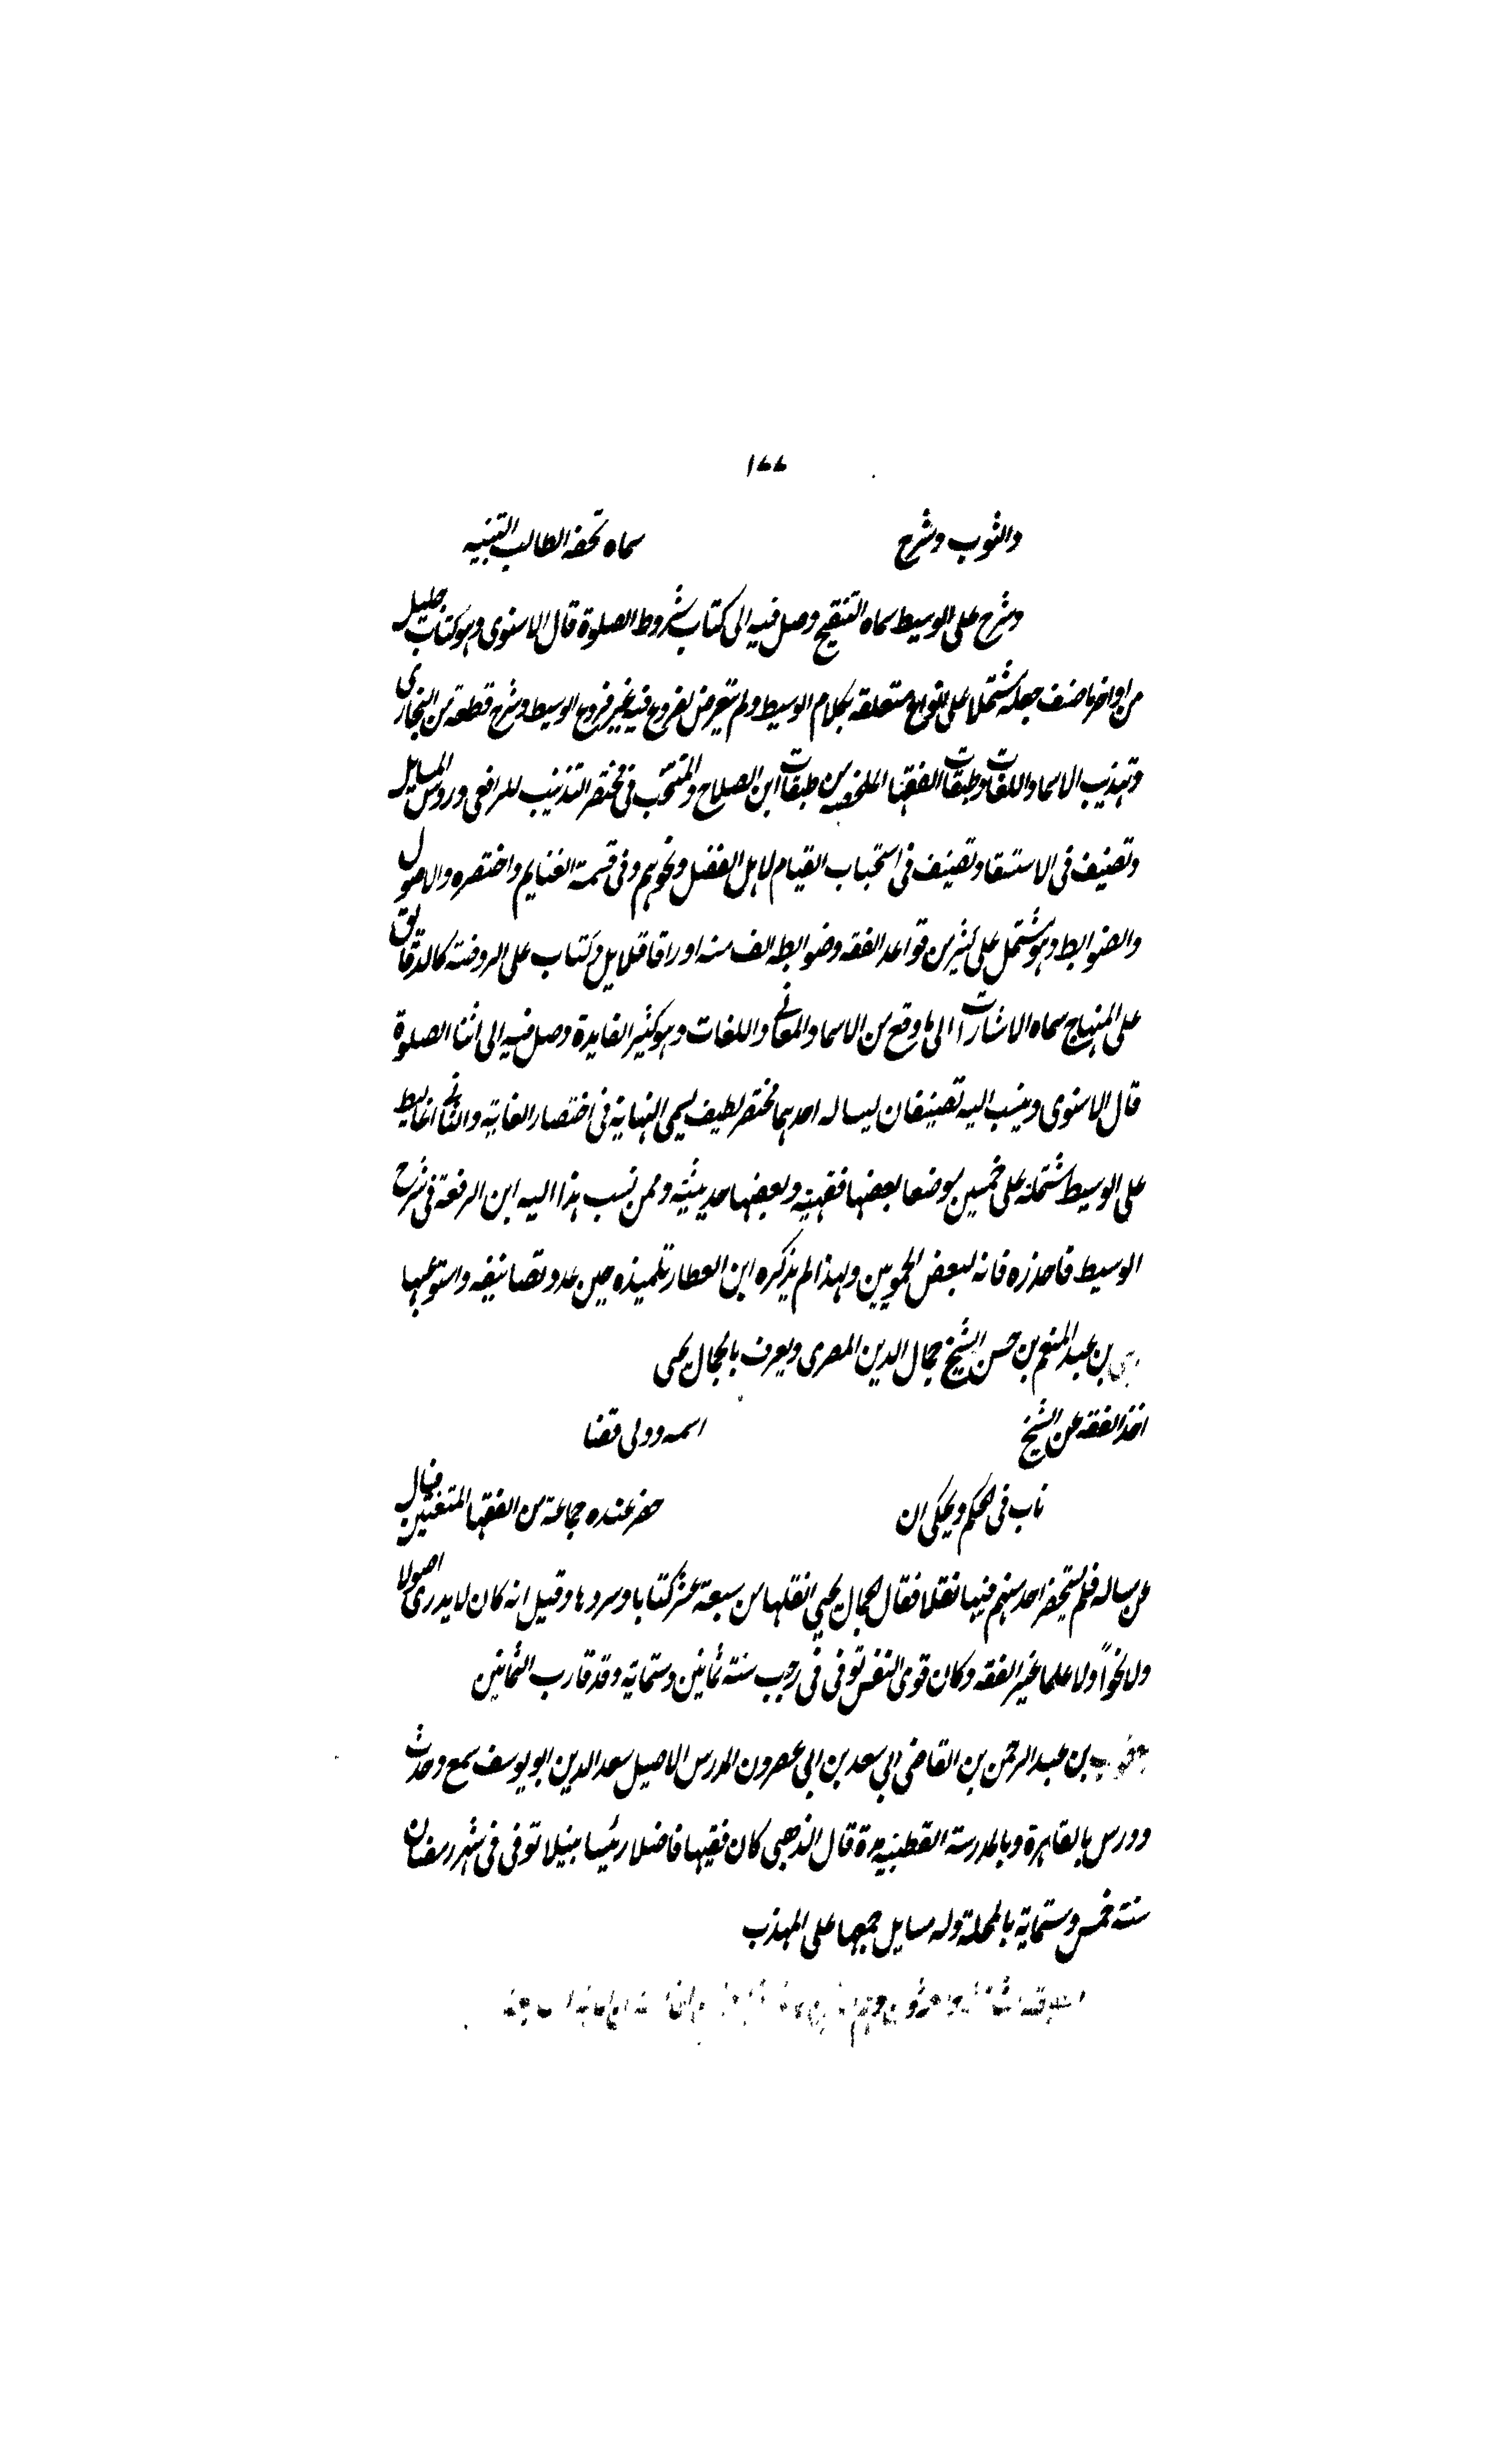 ١٧٧
والثوب وشرح سماه تحفة الطالب التنبيه
وشرح على الوسيط سماه التنقيح وصل فيه الى كتاب شروط الصلوة قال الاسنوى وهو كتاب جليل
من اواخر ما صنف جعله مشتملا على انواع متعلقه بكلام الوسيط ولم يتعرض لفروع فيه غير فروع الوسيط وشرح قطعة من البخارى
وتهذيب الاسما واللغات وطبقات الفقها الملخصه من طبقات ابن الصلاح والمنتخب فى مختصر التذنيب للرافعى وروس المسايل
وتصنيف فى الاستسقا وتصنيف فى استحباب القيام لاهل الفضل ونحوهم وفى قسمة الغنايم واختصره والاصول
والضوابط وهو مشتمل على كثير من قواعد الفقه وضوابطه الف منه اوراقا قلايل وكتاب على الروضة كالدقايق
على المنهاج سماه الاشارات الى ما وقع من الاسما والمعانى واللغات وهو كثير الفايدة وصل فيه الى اثنا الصلوة
قال الاسنوى وينسب اليه تصنيفان ليسا له احدهما مختصر لطيف يسمى النهاية فى اختصار الغاية والثانى اغاليط
على الوسيط مشتملة على خمسين موضعا بعضها فقهية وبعضها حديثية وممن نسب هذا اليه ابن الرفعة فى شرح
الوسيط فاحذره فانه لبعض الحمويين ولهذا لم يذكره ابن العطار تلميذه حين عدد تصانيفه واستوعبها
بن عبد المنعم بن حسن الشيخ جمال الدين المصرى ويعرف بالجمال يحيى
اخذ الفقه عن الشيخ اسمه وولى قضا
ناب فى الحكم ويحكى ان حضر عنده جماعة من الفقها المتعينين فسال
عن مساله فلم يستحضر احد منهم فيها نقلا فقال الجمال يحيى انقلها من سبعة عشر كتابا وسردها وقيل انه كان لا يدرى اصولا
ولا نحوًا ولا علما غير الفقه وكان قوى النفس توفى فى رجب سنة ثمانين وستماية وقد قارب الثمانين
بن عبد الرحمن بن القاضى ابى سعد بن ابى عصرون المدرس الاصيل سعد الدين ابو يوسف سمع وحدث
ودرس بالقاهرة وبالمدرسة القطبيه مرة قال الذهبى كان فقيها فاضلا رئيسا نبيلا توفى فى شهر رمضان
سنة خمس وستماية بالمحلة وله مسايل جمعها على المهذب